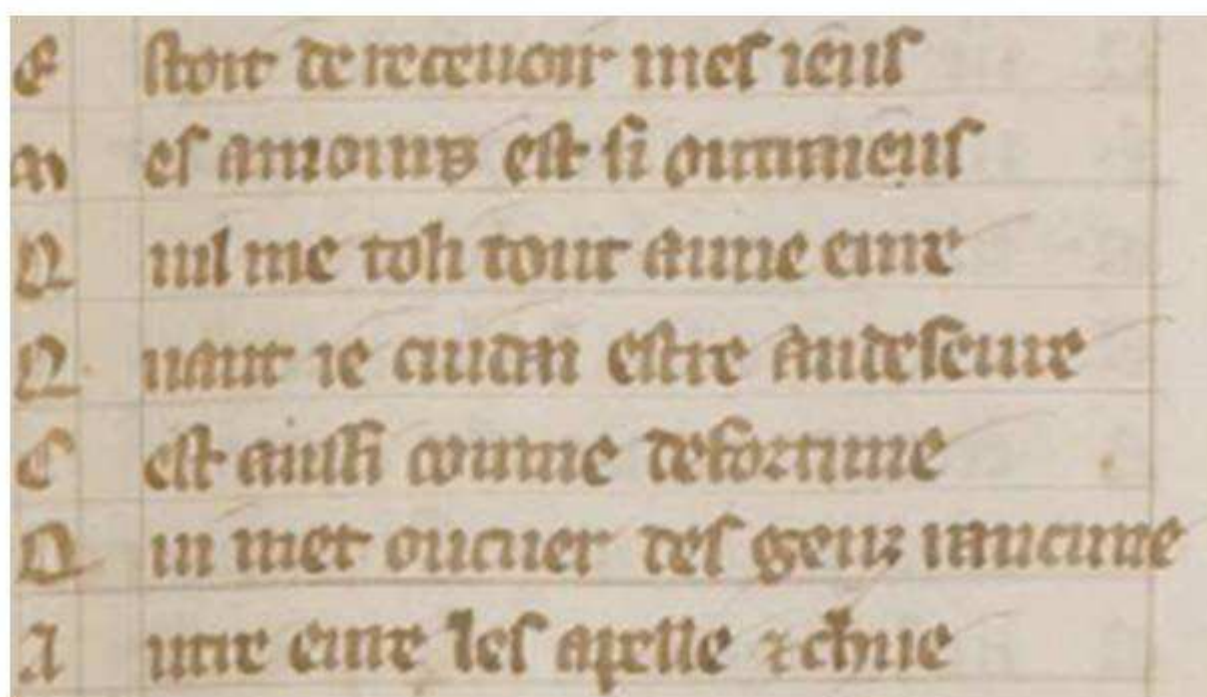 E stoit de receuoir mes ieus
M es amours est si
Q uil me toli tout aune eure
Q uant ie cuidai estre audeseure
C est aussi comme defortune
Q ui met oucuer des genz rancune
A utre eure les apelle ⁊ chue